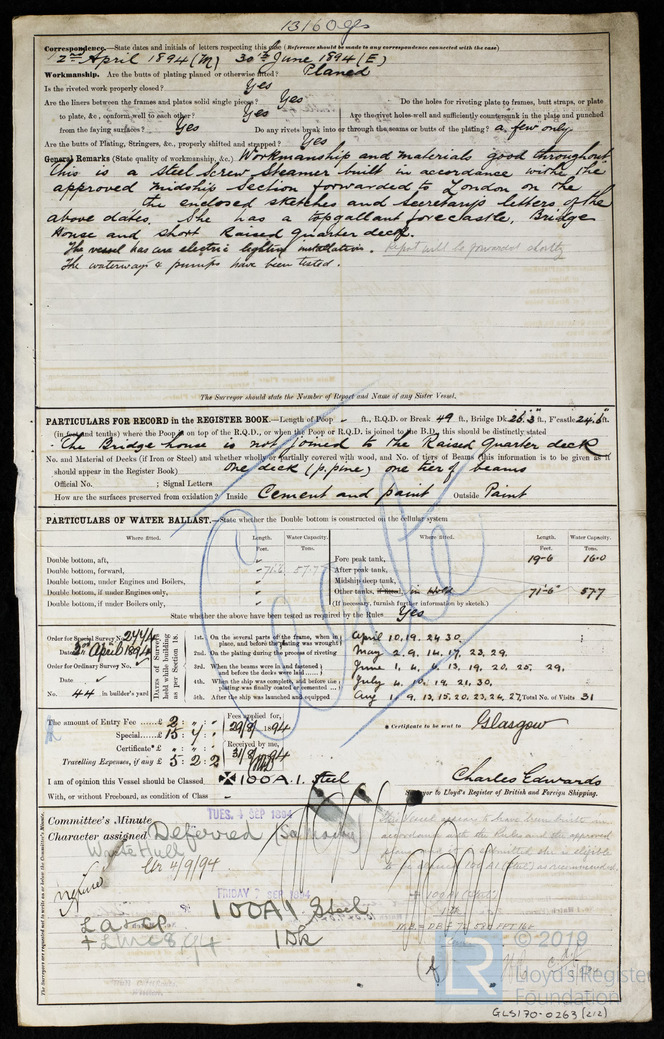 13160 gls
Correspondence.—State dates and initials of letters respecting this case (Reference should be made to any correspondence connected with the case)
2nd April 1894 (M) 30th June 1894 (E)
Workmanship. Are the butts of plating planed or otherwise fitted? Planed
Is the riveted work properly closed? Yes
Are the liners between the frames and plates solid single pieces? Yes Do the holes for riveting plate to frames, butt straps, or plate
to plate, &c., conform well to each other? Yes Are the rivet holes well and sufficiently countersunk in the plate and punched
from the faying surfaces? Yes Do any rivets break into or through the seams or butts of the plating? a few only
Are the butts of Plating, Stringers, &c., properly shifted and strapped? Yes
General Remarks (State quality of workmanship, &c.) Workmanship and materials good throughout
This is a Steel Screw Steamer built in accordance with the
approved midship Section forwarded to London on the
the enclosed sketches and Secretary's letters of the
above dates. She has a topgallant forecastle, Bridge
House and short Raised Quarter deck.
The vessel has an electric lighting installation. Report will be forwarded shortly
The waterways & pumps have been tested.
The Surveyor should state the Number of Report and Name of any Sister Vessel.
PARTICULARS FOR RECORD in the REGISTER BOOK.—Length of Poop - ft., R.Q.D. or Break 49 ft., Bridge Dk 26.3" ft., F'castle 24.6" ft.
(in feet and tenths) where the Poop is on top of the R.Q.D., or when the Poop or R.Q.D. is joined to the B.D., this should be distinctly stated
The Bridge house is not joined to the Raised Quarter deck
No. and Material of Decks (if Iron or Steel) and whether wholly or partially covered with wood, and No. of tiers of Beams (this information is to be given as it
should appear in the Register Book) One deck (p.pine) one tier of beams
Official No. ; Signal Letters
How are the surfaces preserved from oxidation? Inside Cement and paint Outside Paint
PARTICULARS OF WATER BALLAST.—State whether the Double bottom is constructed on the cellular system
Where fitted. Length. Water Capacity. Where fitted. Length. Water Capacity.
Feet. Tons. Feet. Tons.
Double bottom, aft, Fore peak tank, 19-6 16.0
Double bottom, forward, After peak tank,
Double bottom, under Engines and Boilers, Midship deep tank,
Double bottom, if under Engines only, Other tanks, in Hold 71-6" 57.7
Double bottom, if under Boilers only, (If necessary, furnish further information by sketch.)
State whether the above have been tested as required by the Rules Yes
Order for Special Survey No. 2444
Date 2nd April 1894
Order for Ordinary Survey No.
Date
No. 44 in builder's yard
DATES of Surveys held while building as per Section 18.
1st. On the several parts of the frame, when in place, and before the plating was wrought April 10, 19, 24, 30.
2nd. On the plating during the process of riveting May 2, 9, 14, 17, 23, 29.
3rd. When the beams were in and fastened and before the decks were laid June 1, 4, 6, 13, 19, 20, 25, 29,
4th. When the ship was complete, and before the plating was finally coated or cemented July 4, 10, 19, 21, 30.
5th. After the ship was launched and equipped Aug 1, 9, 13, 15, 20, 23, 24, 27, Total No. of Visits 31
The amount of Entry Fee £ 2 : " : "
Special £ 15 : 4 : "
Certificate* £ " : " : "
Travelling Expenses, if any £ 5 : 2 : 2
Fees applied for, 29/8/1894
Received by me, 31/8/94
* Certificate to be sent to Glasgow
I am of opinion this Vessel should be Classed 100A.1. Steel
With, or without Freeboard, as condition of Class -
Charles Edwards
Surveyor to Lloyd's Register of British and Foreign Shipping.
TUES. 4 SEP 1894
Committee's Minute
Character assigned Deferred
Write Hull
4/9/94
FRIDAY 7 SEP 1894
100A1 Steel
1 Dk
L A & CP
+ LMC 8/94
This Vessel appears to have been built in
accordance with the Rules and the approved
+ 100A1 (Steel)
1 Dk
The Surveyors are requested not to write on or below the Committee's Minute.
LR
© 2019
Lloyd's Register
Foundation
GLS170-0263 (212)